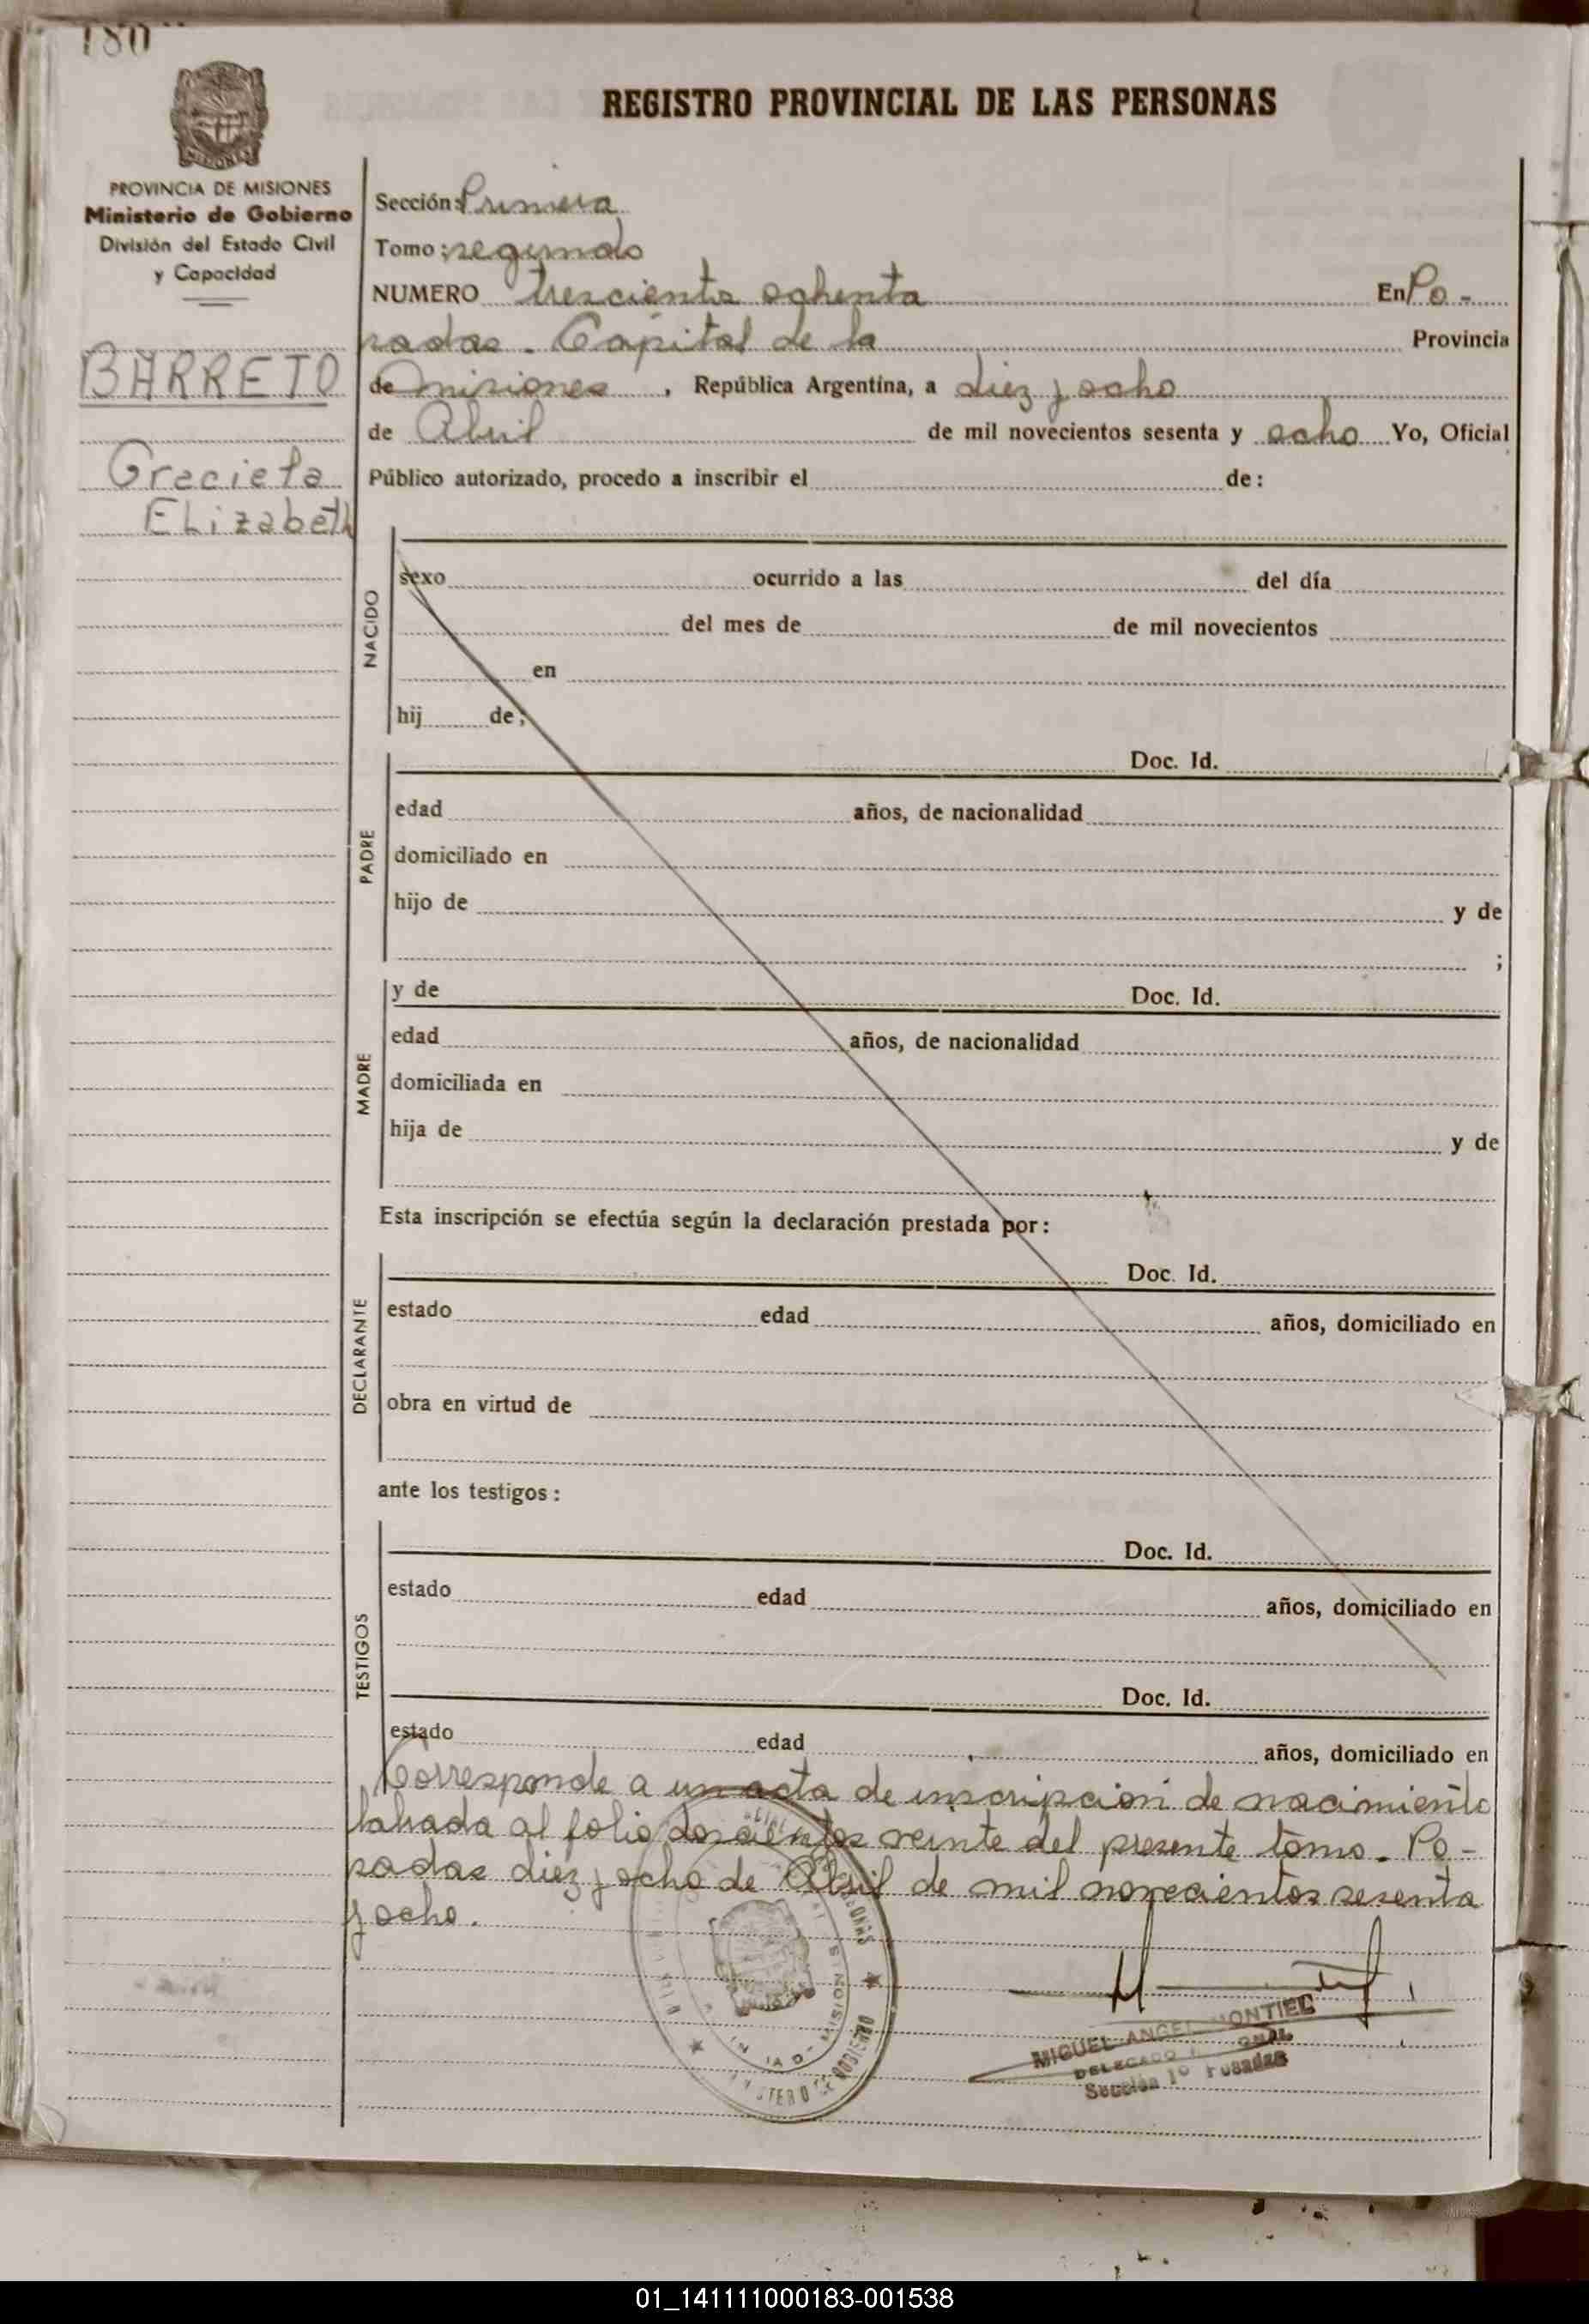 180
REGISTRO PROVINCIAL DE LAS PERSONAS
MISIONES
PROVINCIA DE MISIONES
Ministerio de Gobierno
División del Estado Civil
y Capacidad
BARRETO
Graciela
ELizabeth
Sección: Primera
Tomo: segundo
NUMERO trescientos ochenta En Po-
sadas. Capital de la Provincia
de Misiones, República Argentina, a diez y ocho
de Abril de mil novecientos sesenta y ocho Yo, Oficial
Público autorizado, procedo a inscribir el de:
NACIDO
sexo ocurrido a las del día
del mes de de mil novecientos
en
hij de;
PADRE
Doc. Id.
edad años, de nacionalidad
domiciliado en
hijo de y de
;
MADRE
y de Doc. Id.
edad años, de nacionalidad
domiciliada en
hija de y de
Esta inscripción se efectúa según la declaración prestada por:
DECLARANTE
Doc. Id.
estado edad años, domiciliado en
obra en virtud de
ante los testigos:
TESTIGOS
Doc. Id.
estado edad años, domiciliado en
Doc. Id.
estado edad años, domiciliado en
Corresponde a un acta de inscripción de nacimiento
labrada al folio doscientos veinte del presente tomo. Po-
sadas diez y ocho de Abril de mil novecientos sesenta
y ocho.
MIGUEL ANGEL MONTIEL
DELEGADO
Sección 1º Posadas
01_141111000183-001538